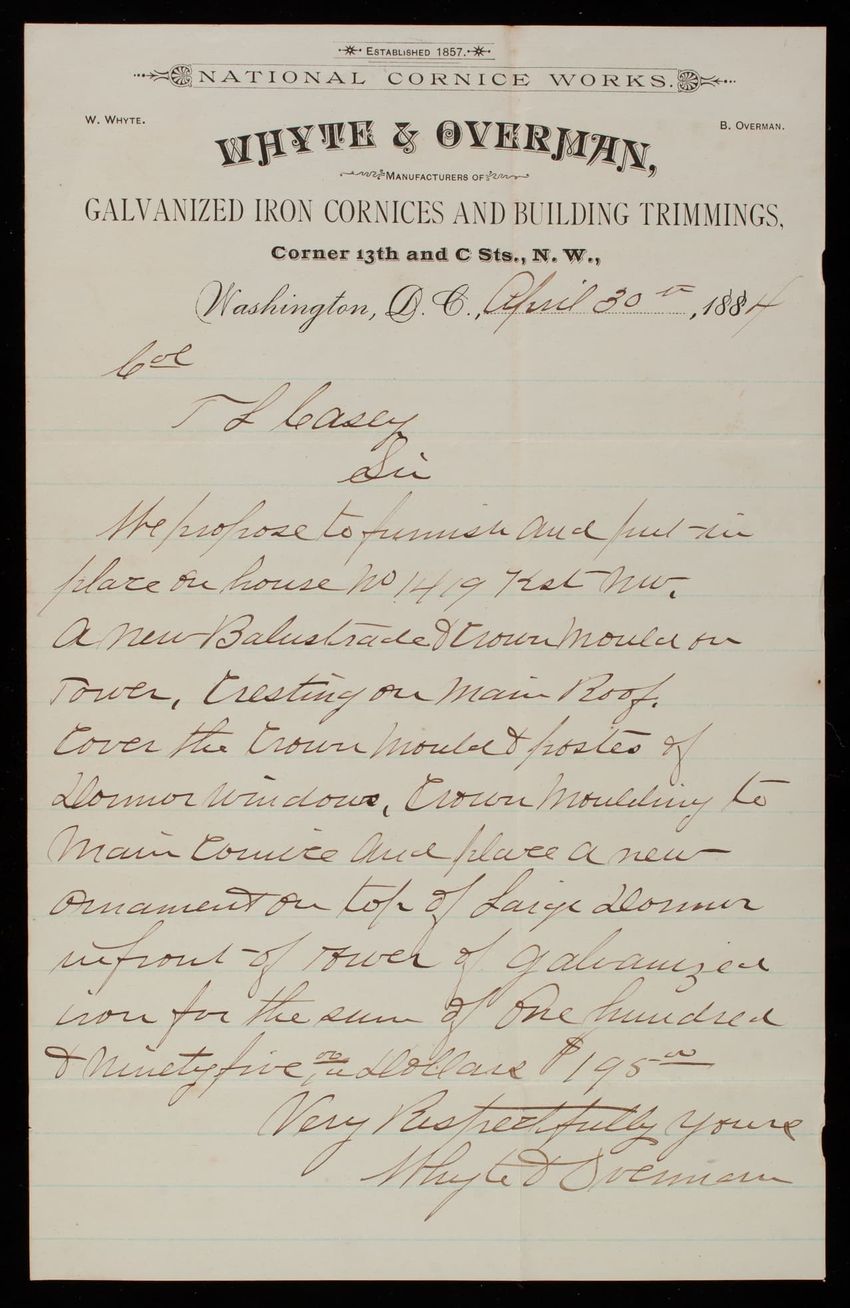 ESTABLISHED 1857.
NATIONAL CORNICE WORKS.
W. WHYTE.
B. OVERMAN.
WHYTE & OVERMAN,
MANUFACTURERS OF
GALVANIZED IRON CORNICES AND BUILDING TRIMMINGS,
Corner 13th and C Sts., N. W.,
Washington, D. C., April 30th, 1884
Col
T L Casey
Sir
We propose to furnish and put in
place on house No 1419 K st NW.
A new Balustrade & Crown Mould on
Tower, Cresting on Main Roof.
Cover the Crown Mould & postes of
Dormor windows, Crown Moulding to
Main Cornice and place a new
ornament on top of Large Dormer
infront of Tower of galvanized
iron for the sum of One hundred
& Ninety five 00/100 Dollars $195 00
Very Respectfully yours
Whyte & Overman